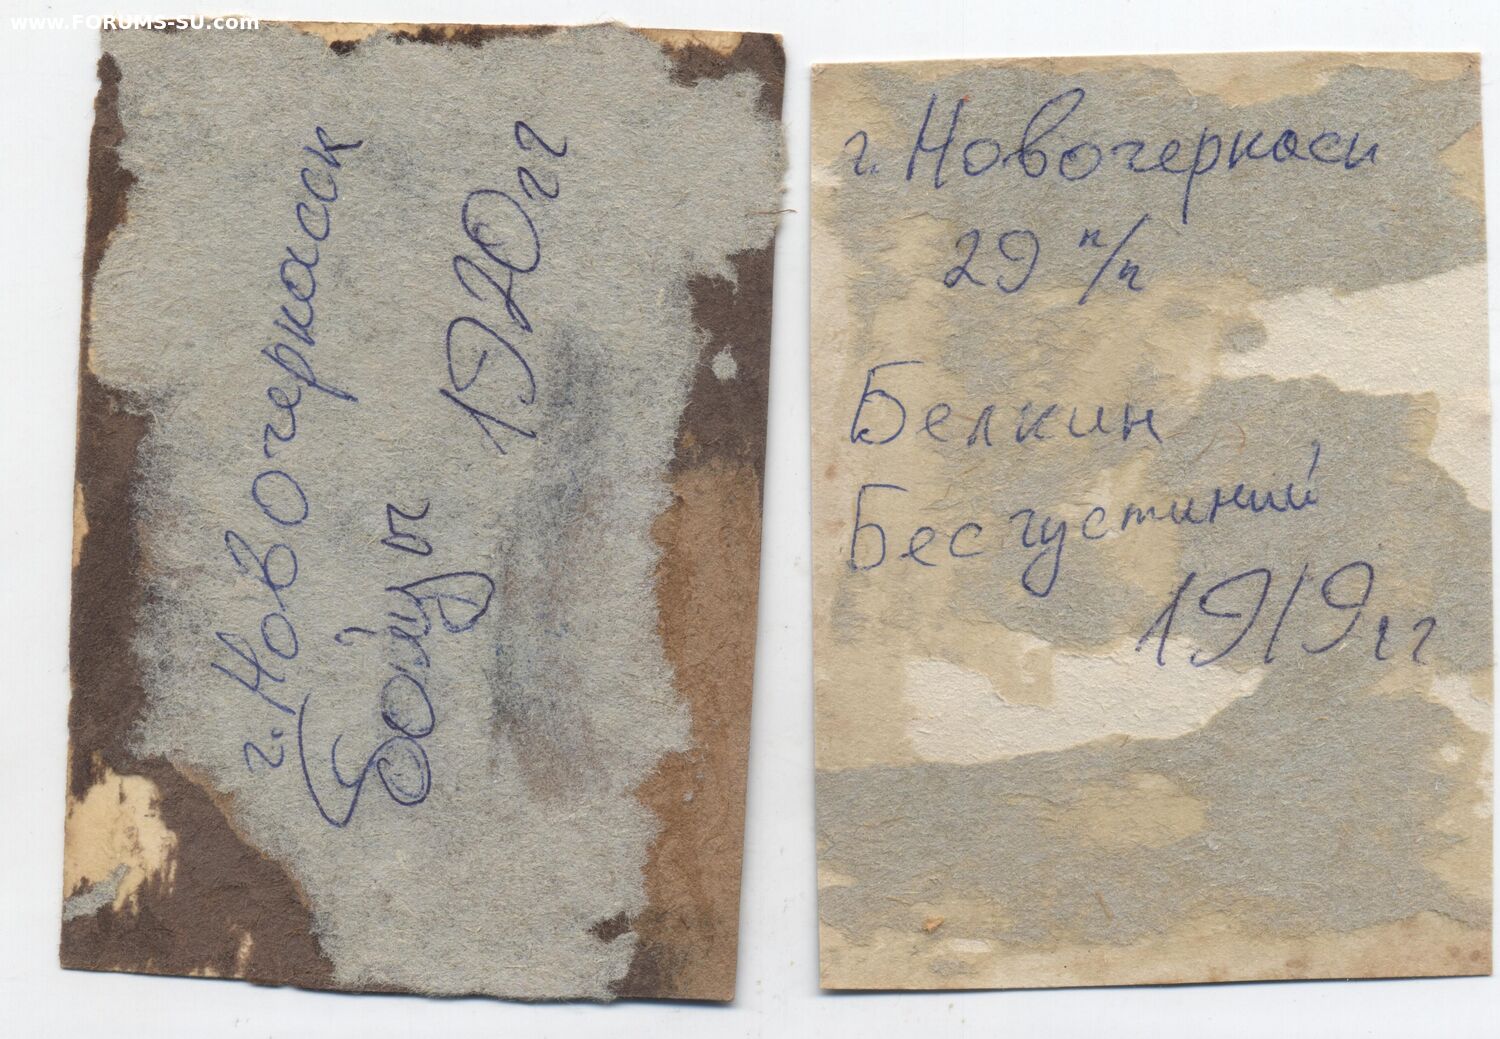 www.FORUMS-SU.com
г. Новочеркасск
1920гг
г. Новочеркасск
29 п/п
Белкин
Бесчустиний
1919гг